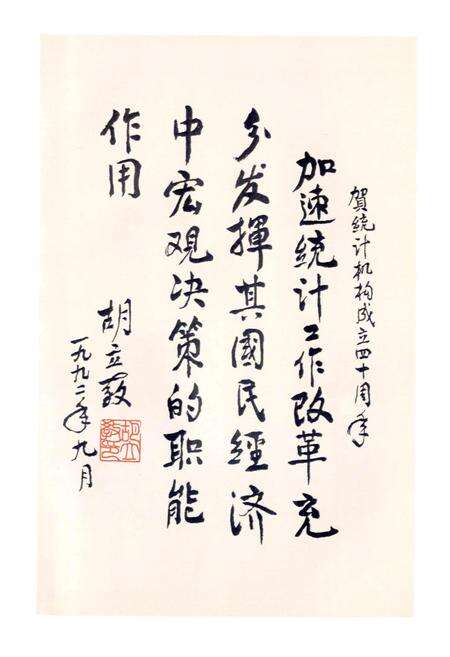 賀统计机构成立四十周年
加速统计工作改革充
分发揮其國民經济
中宏观决策的职能
作用
胡立教
一九九二年九月